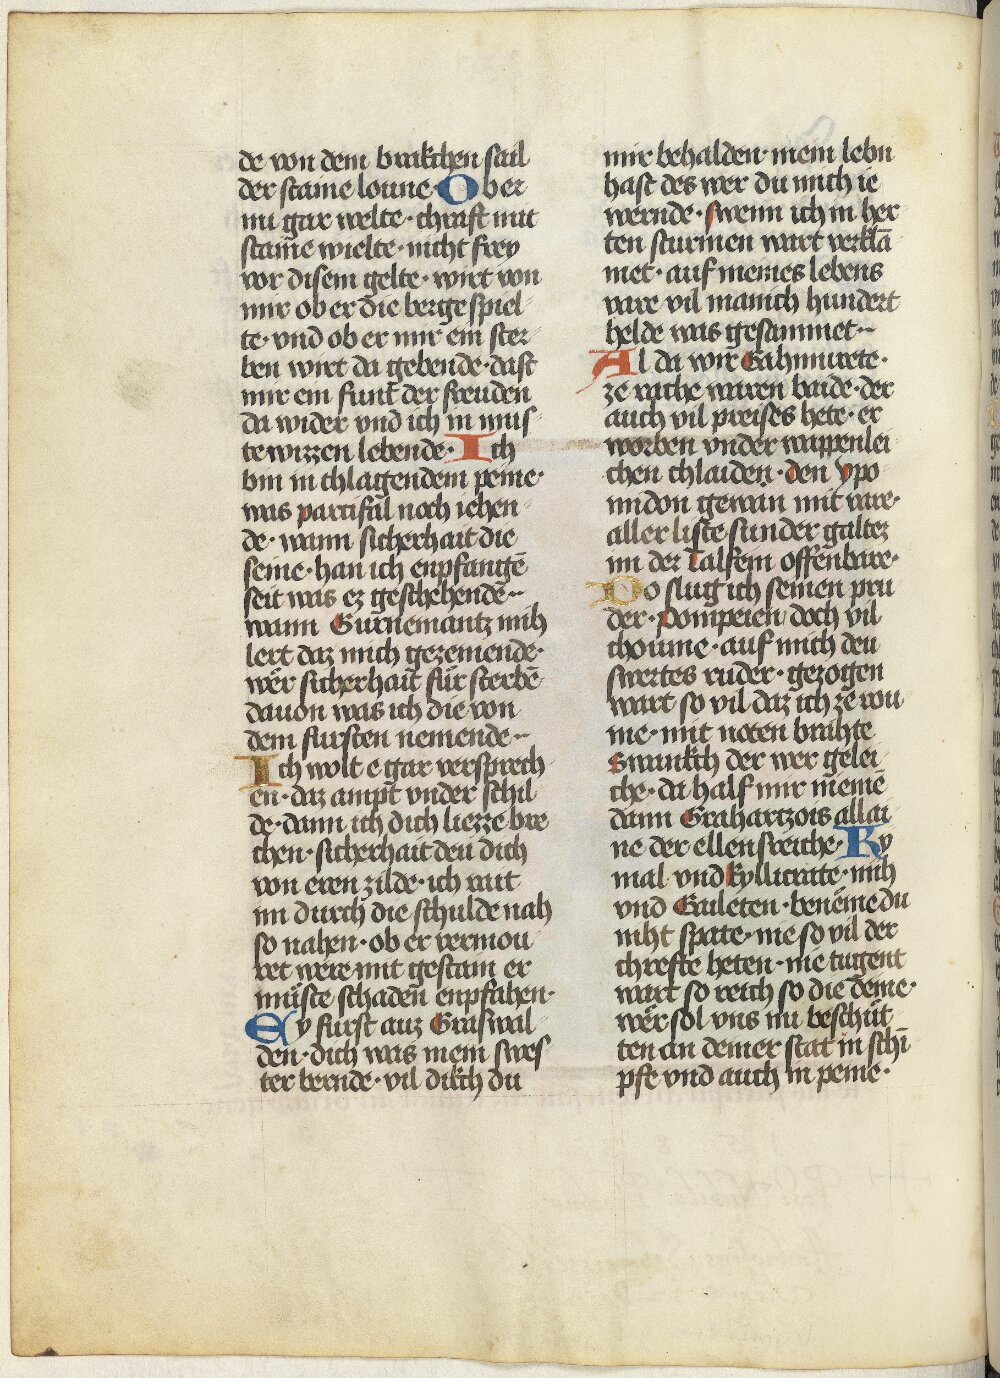 de von dem brakchen sail
der staine loune· Ob er
nu gar welte· chraft mit
stam̄e wielte· nicht frey
vor disem gelte· wirt von
mir ob er die berge spiel
te· vnd ob er mir ein ster
ben wirt da gebende· dast
mir ein funt der freuden
da wider vnd ich in mus
te wizzen lebende· Ich
bin in chlagendem peine·
was partifal noch iehen
de· wann sicherhait die
seine· han ich enpfangē
seit was ez geschehendē··
wann Gurnemantz mih
lert daz mich gezemende·
wër sicherhait für sterbē
dauon was ich die von
dem fursten nemende··
Ich wolt e gar versprech
en· daz ampt vnder schil
de· dann ich dich liezze bre
chen· sicherhait deu dich
von eren zilde· ich rait
im durch die schulde nah
so nahen· ob er vermou
ret were mit gestain er
müste schaden enpfahen·
Ey furst auz Graswal
den· dich was mein swes
ter bernde· vil dikch du
mir behalden· mein lebn
hast des wer du mich ie
wernde· swenn ich in her
ten sturmen wart verklā
met· auf meines lebens
vare vil manich hundert
helde was gesammet··
Al da wir Gahmurete·
ze rache waren baide· der
auch vil preises hete· er
worben vnder wappenlei
chen chlaiden· den ypo
midon gewan mit vare·
aller liste sunder galtez
im der Talfein offenbare·
Do slug ich seinen pru
der· pompeien doch vil
choume· auf mich deu
swertes ruder· gezogen
wart so vil daz ich ze rou
me· mit noten brahte
swankch der wer gelei
che· da half mir niemē
dann Grahartzois allai
ne der ellensreiche· Ky
mal vnd kyllicrate· mih
vnd Gaileten· benëme du
niht spate· nie so vil der
chrefte heten· nie tugent
wart so reich so die deine·
wër sol vns nu beschüt
ten an deiner stat in schī
pfe vnd auch in peine·